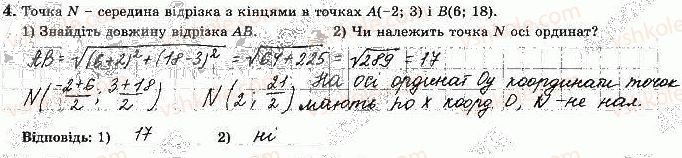 4. Точка N – середина відрізка з кінцями в точках A(-2; 3) і B(6; 18).
1) Знайдіть довжину відрізка AB. 2) Чи належить точка N осі ординат?
AB = √((6+2)² + (18-3)²) = √(64+225) = √289 = 17
N(-2+6/2; 3+18/2) N(2; 21/2) На осі ординат Oy координати точок
мають по x коорд 0, N – не нал.
Відповідь: 1) 17 2) ні